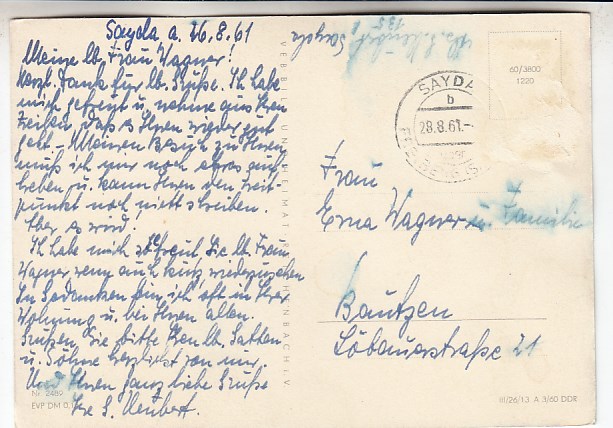 Sayda a. 26.8.61
Meine lb. Frau Wagner!
Herzl. Dank für lb. Grüße. Ich habe
mich gefreut u. nehme aus Ihren
Zeilen, daß es Ihnen wieder gut
geht. – Meinen Besuch zu Ihnen
muß ich nur noch etwas auf-
heben u. kann Ihnen den Zeit-
punkt noch nicht schreiben.
Aber es wird!
Ich habe mich so gefreut Sie lb. Frau
Wagner wenn auch kurz wiederzusehen
In Gedanken bin ich oft in Ihrer
Wohnung u. bei Ihnen allen.
Grüßen Sie bitte Ihren lb. Gatten
u. Söhne herzlichst von mir.
Und Ihnen ganz liebe Grüße
Ihre S. Neubert.
Nr. 2489
EVP DM 0,
VEB BILD UND HEIMAT REICHENBACH i. V.
Sayda
135
60/3800
1220
SAYDA
b
28.8.61.-
Frau
Erna Wagner u. Familie
Bautzen
Löbauerstraße 21
III/26/13 A 3/60 DDR